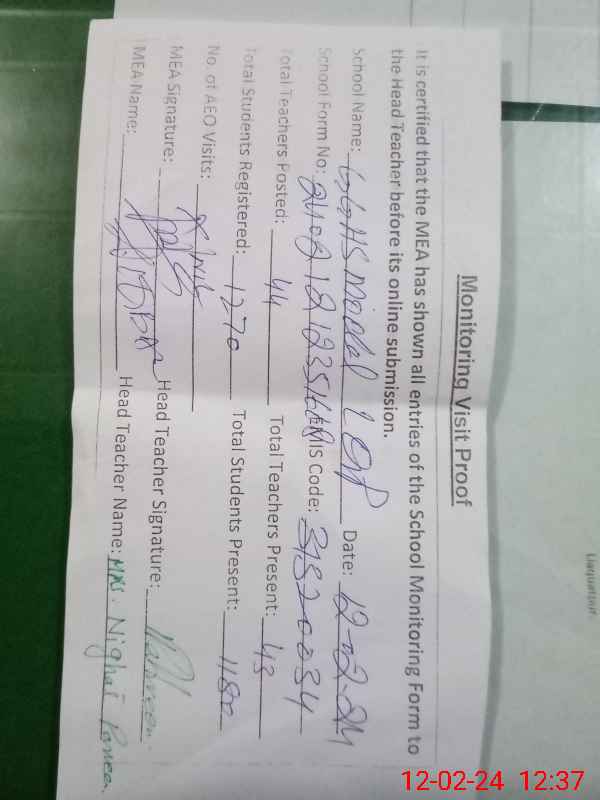 Monitoring Visit Proof
It is certified that the MEA has shown all entries of the School Monitoring Form to
the Head Teacher before its online submission.
School Name: GGHS Model LOP Date: 12-02-24
School Form No: EMIS Code: 31320034
Total Teachers Posted: 44 Total Teachers Present: 43
Total Students Registered: 1270 Total Students Present:
No. of AEO Visits:
MEA Signature: Head Teacher Signature:
MEA Name: Head Teacher Name: Mrs. Nighat
12-02-24 12:37